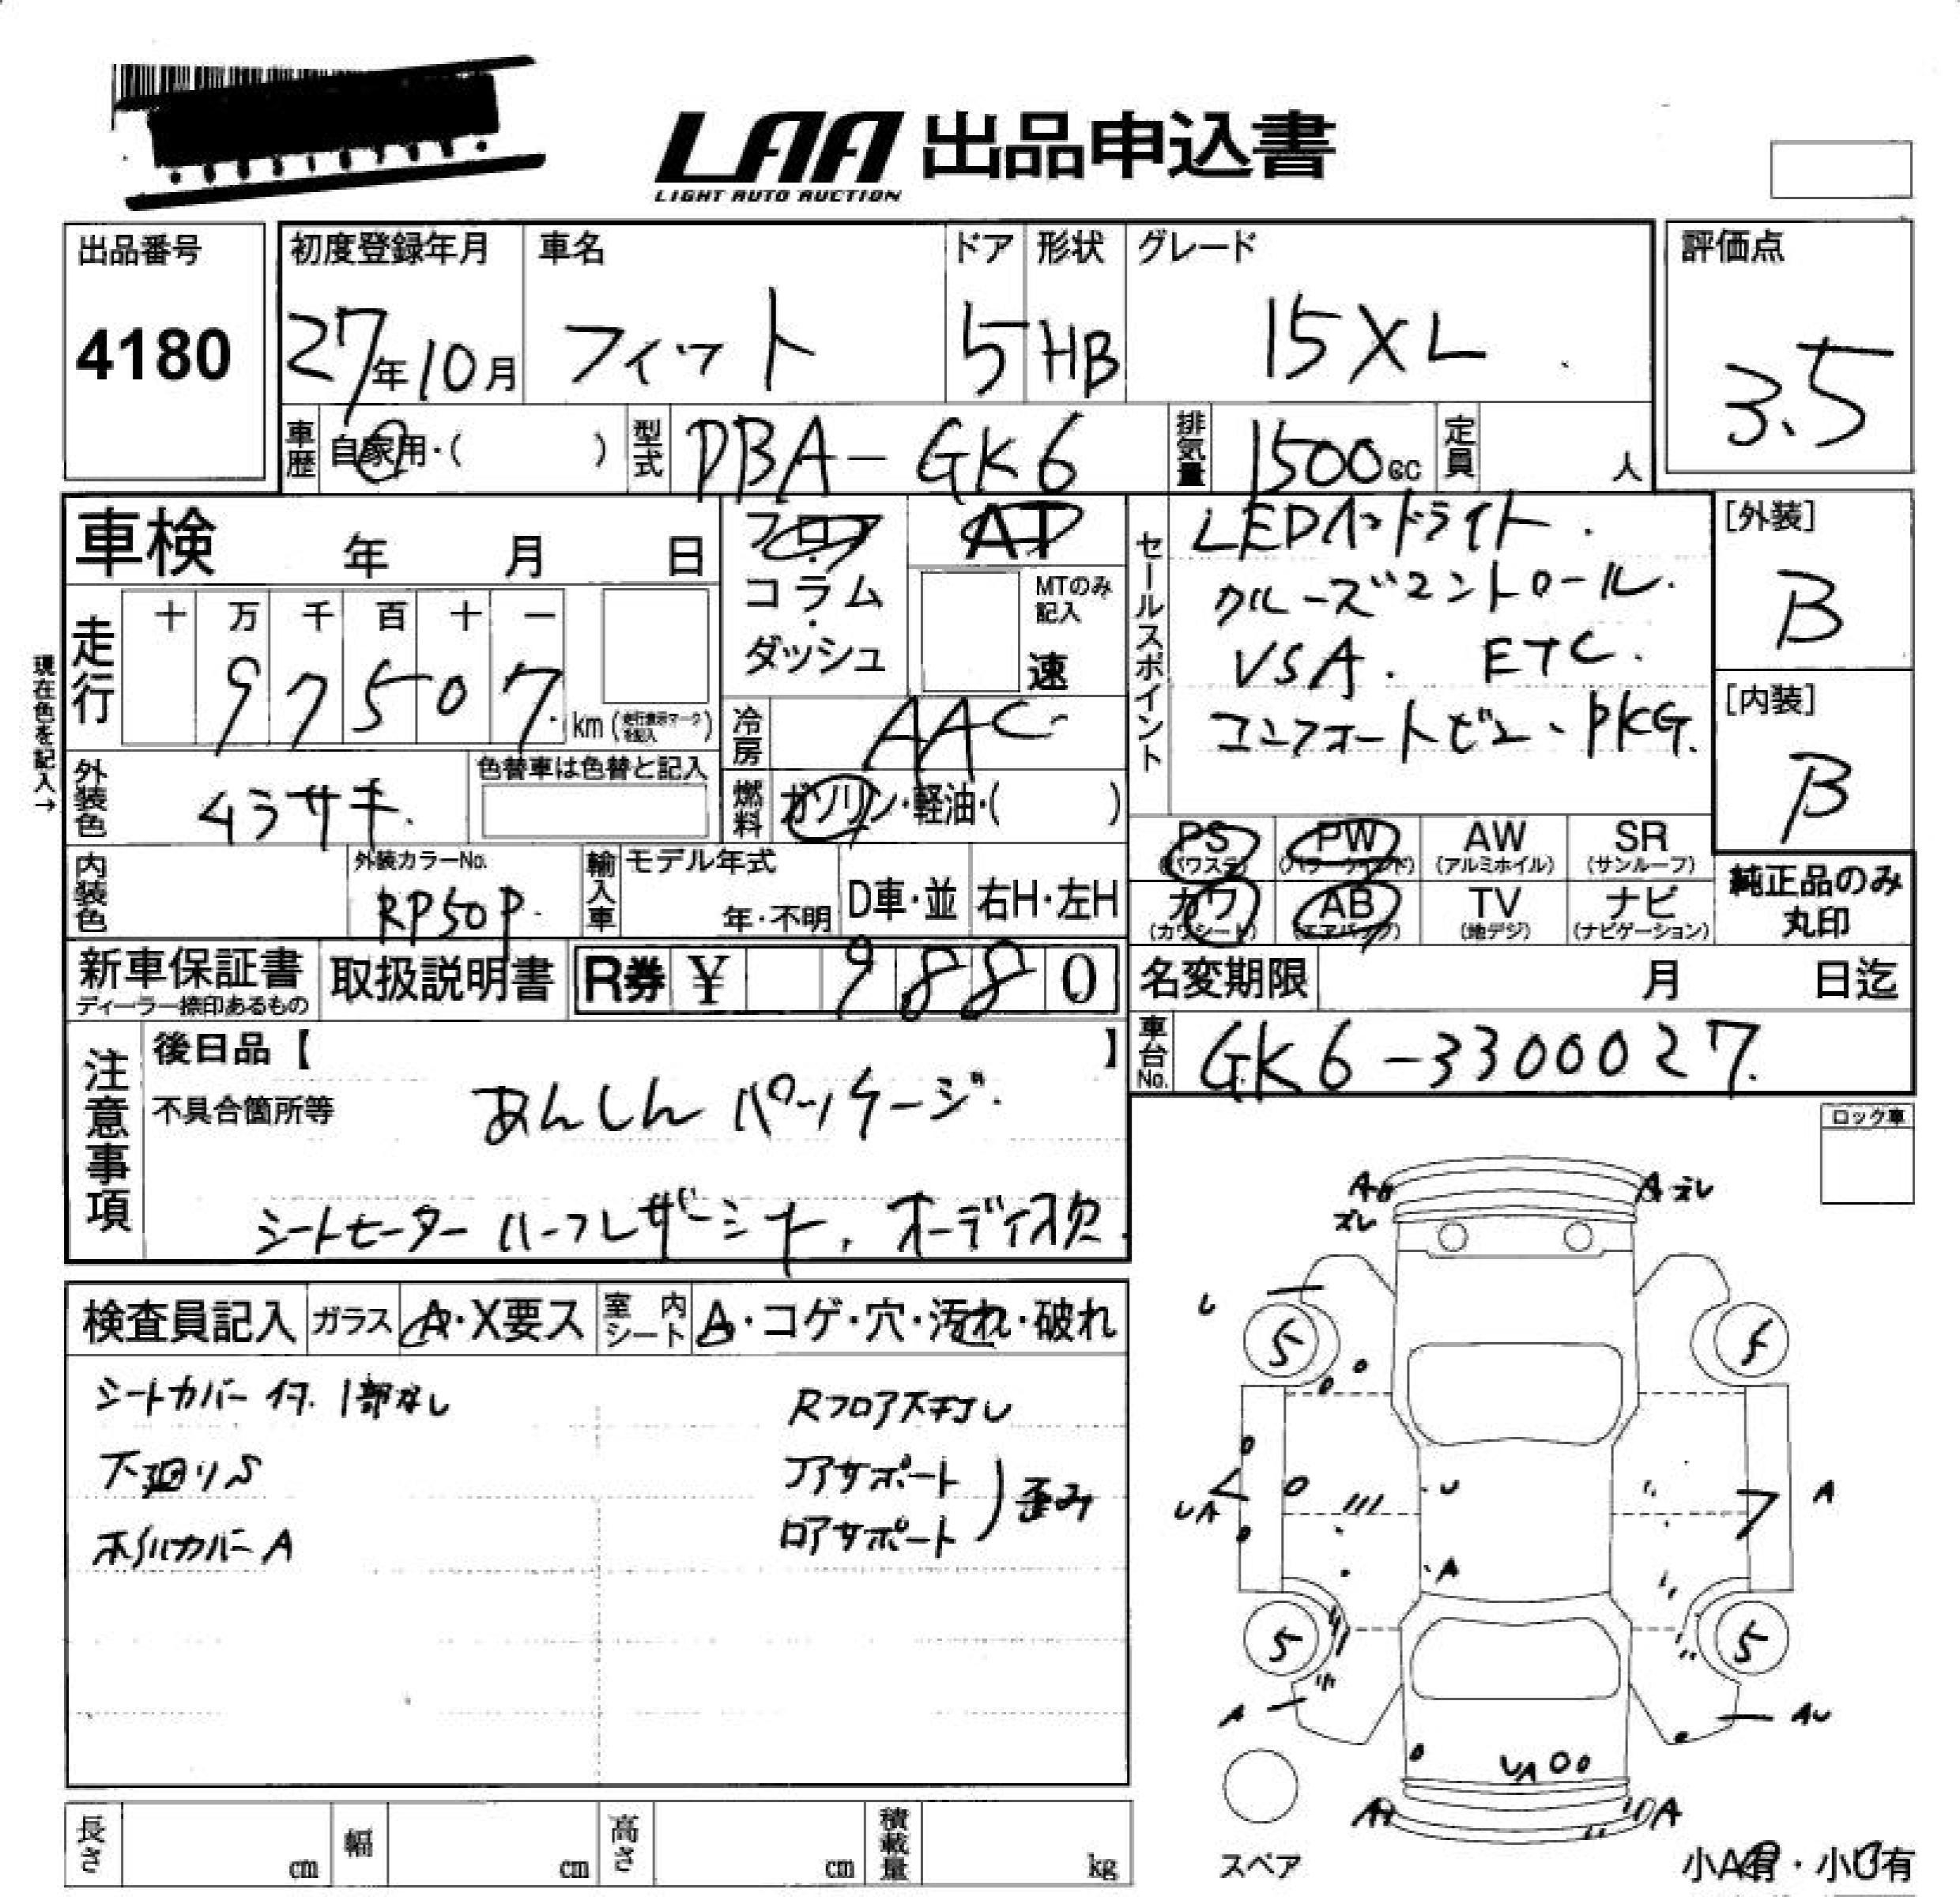 LAA 出品申込書
LIGHT AUTO AUCTION
出品番号
4180
初度登録年月
27年10月
車名
フィット
ドア
5
形状
HB
グレード
15XL
評価点
3.5
車歴
自家用・( )
型式
DBA-GK6
排気量
1500cc
定員
人
車検 年 月 日
フロア
・
コラム
・
ダッシュ
AT
MTのみ
記入
速
セールスポイント
LEDヘッドライト.
クルーズコントロール.
VSA. ETC.
コンフォートビューPKG.
[外装]
B
[内装]
B
現在色を記入→
走行
十 万 千 百 十 一
9 7 5 0 7
km (走行表示マークを記入)
冷房
AAC
燃料
ガソリン・軽油・( )
外装色
ムラサキ.
色替車は色替と記入
PS
(パワステ)
PW
(パワーウィンド)
AW
(アルミホイル)
SR
(サンルーフ)
カワ
(カワシート)
AB
(エアバック)
TV
(地デジ)
ナビ
(ナビゲーション)
純正品のみ
丸印
内装色
外装カラーNo.
RP50P.
輸入車
モデル年式
年・不明
D車・並
右H・左H
新車保証書
ディーラー捺印あるもの
取扱説明書
R券 ¥ 9880
名変期限 月 日迄
車台No.
GK6-3300027.
注意事項
後日品【 】
不具合箇所等
あんしんパッケージ.
シートヒーター ハーフレザーシート. オーディオ欠.
ロック車
検査員記入
ガラス
A・X要ス
室内シート
A・コゲ・穴・汚れ・破れ
シートカバー付. 1部なし
下廻りS
ホイルカバーA
Rフロア下押し
コアサポート
ロアサポート
)歪み
A
ズレ
A ズレ
U
5
5
UA
U
A
A
5
5
A
AU
UA
A
A
スペア
小A有・小U有
長さ cm
幅 cm
高さ cm
積載量 kg